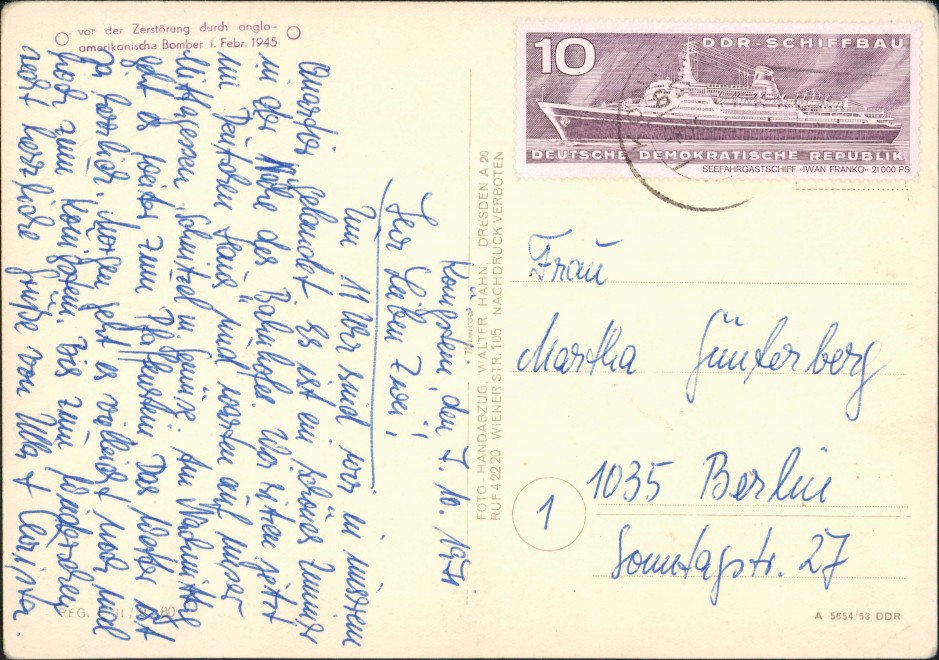 vor der Zerstörung durch anglo-
amerikanische Bomber i. Febr. 1945
Königstein, den 7. 10. 1971
Ihr Lieben Zwei!
Um 11 Uhr sind wir in unserem
Quartier gelandet. Es ist ein schönes Zimmer
in der Nähe des Bahnhofs. Wir sitzen jetzt
im Deutschen Haus und warten auf unser
Mittagessen, Schnitzel u. Gemüse. Am Nachmittag
geht es weiter zum Pfaffenstein. Das Wetter ist
ja herrlich. Morgen geht es vielleicht noch mal
hoch zum Königstein. Bis zum Wiedersehen
recht herzliche Grüße von Ulla +
FOTO-HANDABZUG, WALTER HAHN, DRESDEN A 20
RUF 42220 WIENER STR. 105 NACHDRUCK VERBOTEN
10
DDR-SCHIFFBAU
DEUTSCHE DEMOKRATISCHE REPUBLIK
SEEFAHRGASTSCHIFF »IWAN FRANKO« 21000 PS
Frau
Martha Günterberg
1
1035 Berlin
Sonntagstr. 27
REG.
A 5654/53 DDR